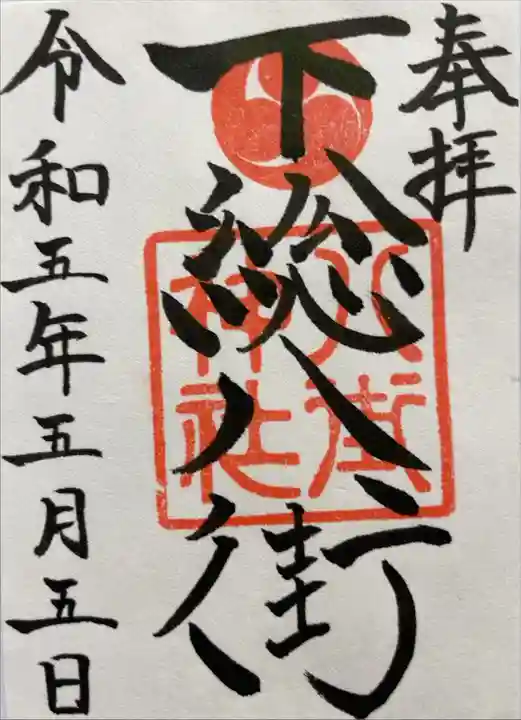 奉拝
下総八街
八街
神社
令和五年五月五日